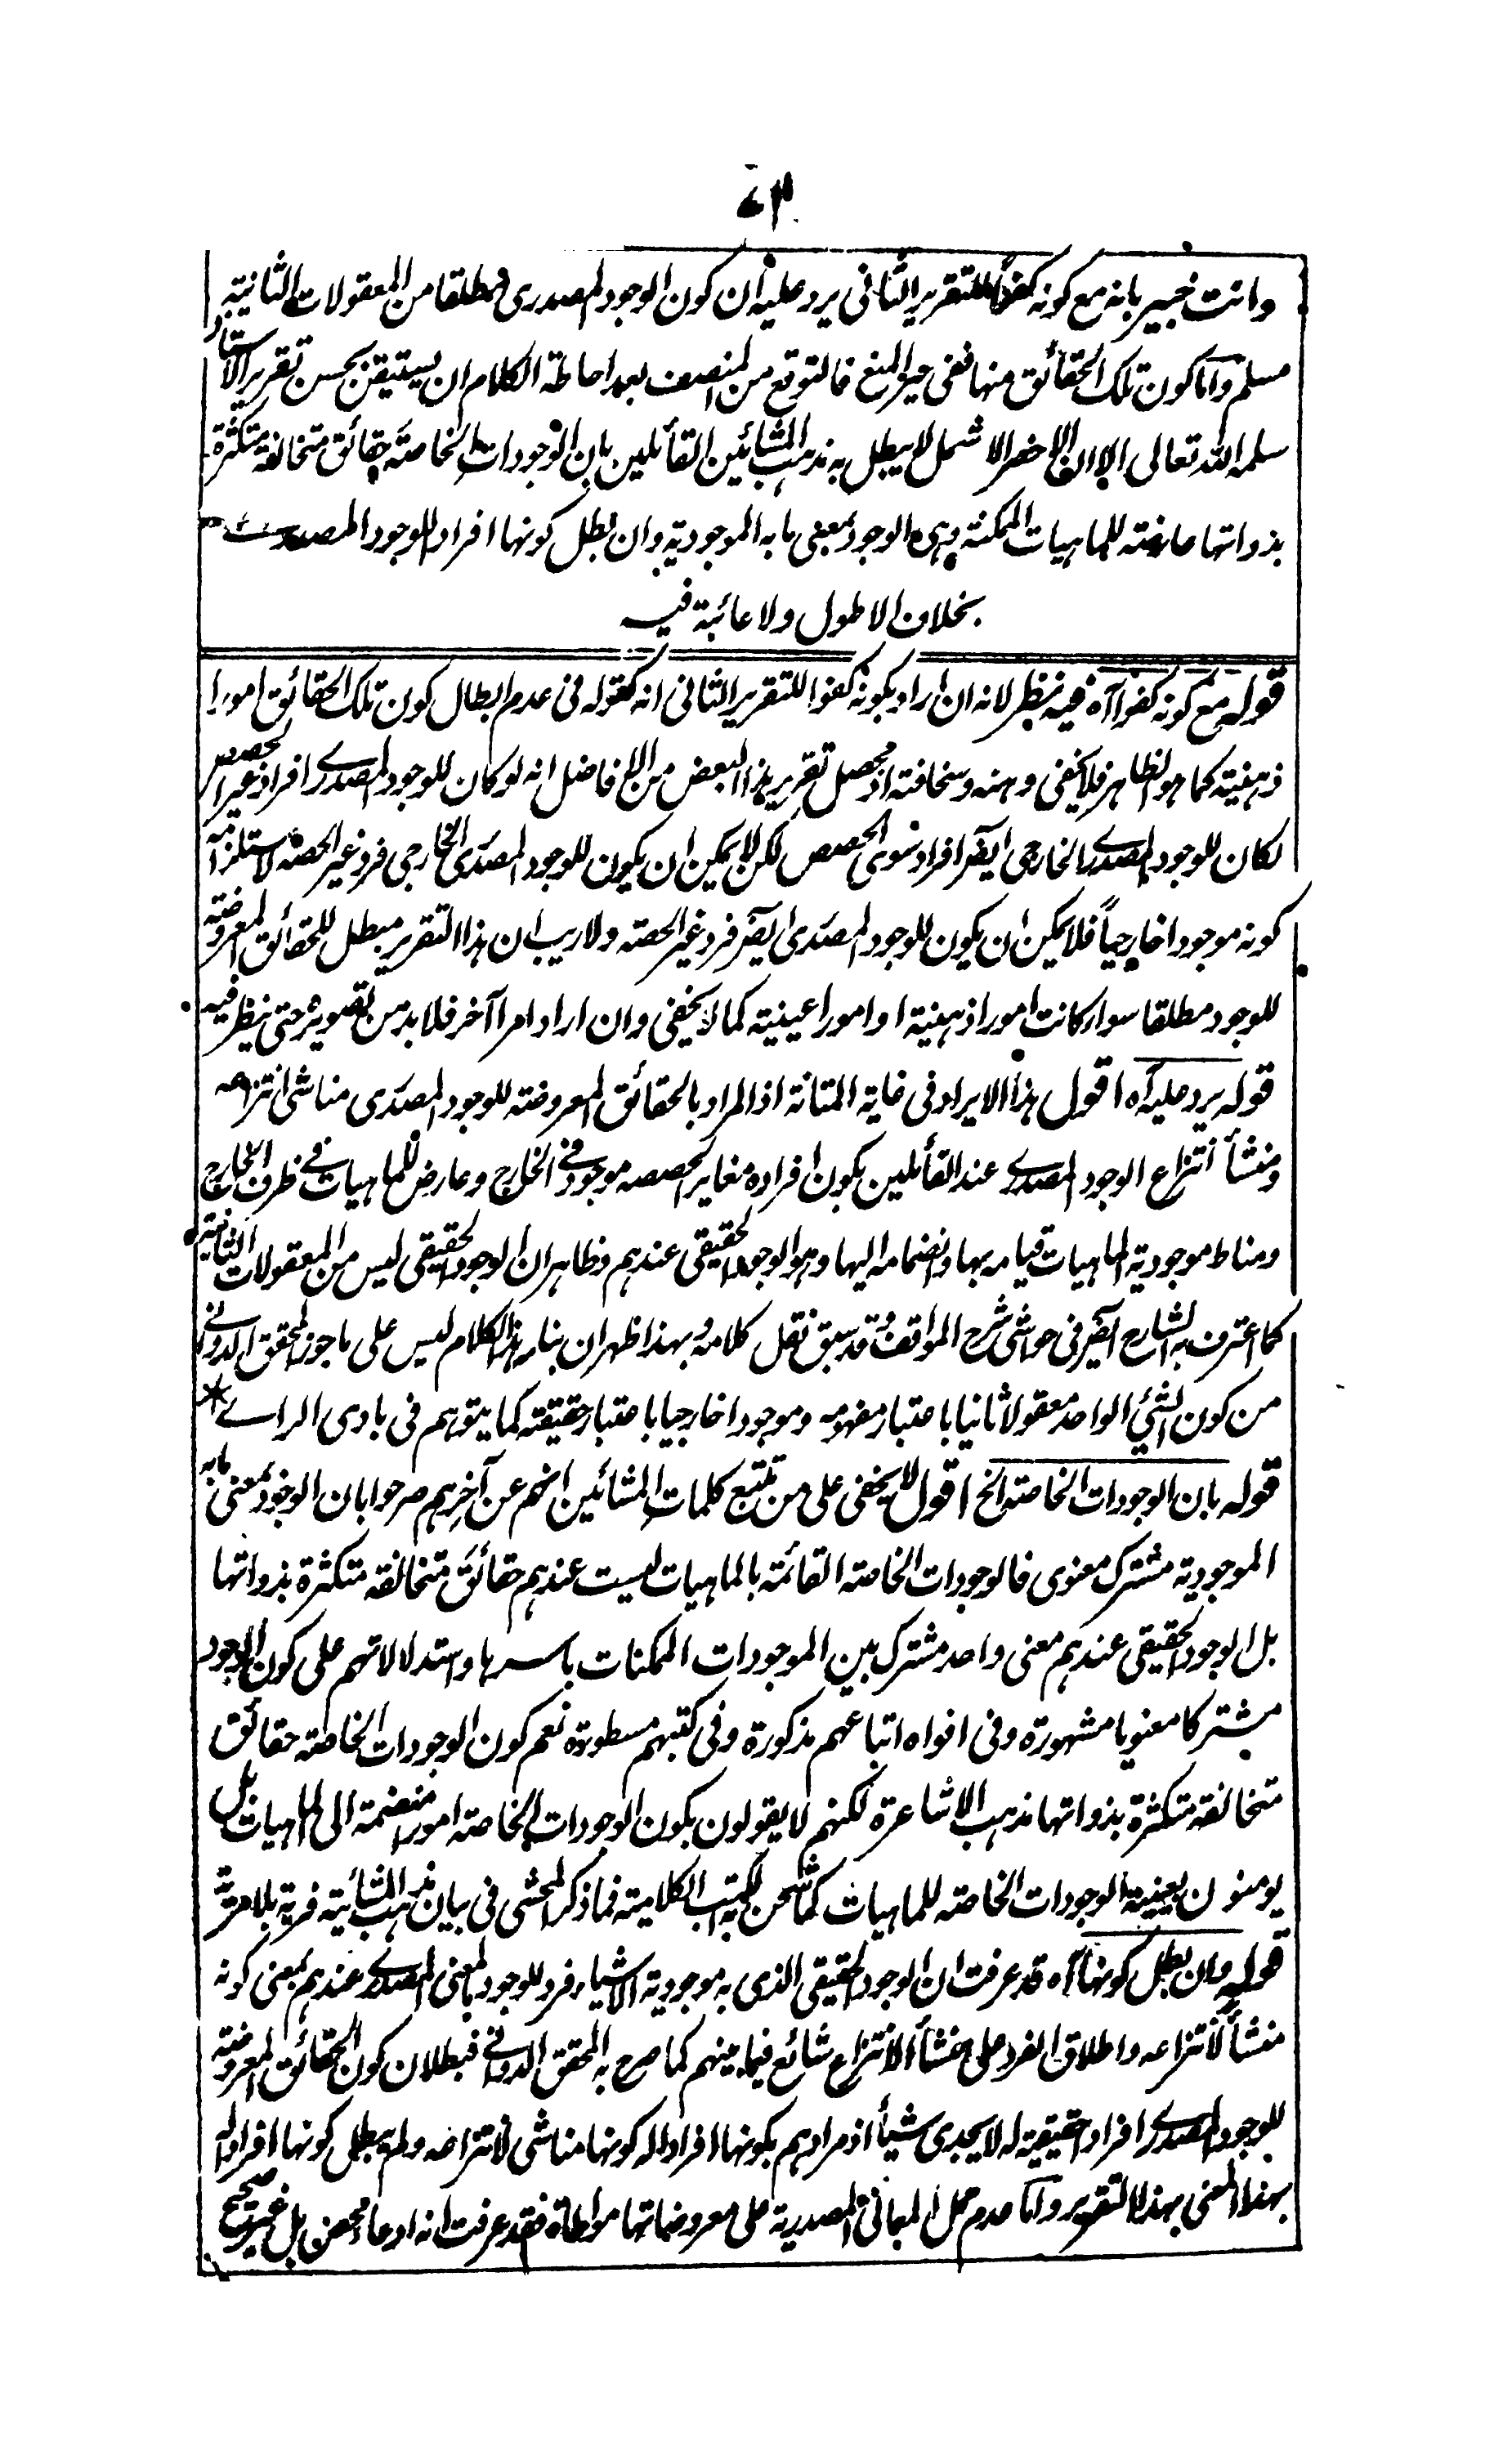 ٤٣
وانت خبير بانه مع كونه كفوا للتقرير الثاني يرد عليه ان كون الوجود المصدري مطلقا من المعقولات الثانية
مسلم واما كون تلك الحقائق منها ففي حيز المنع فالمتوقع من المنصف بعد احاطة الكلام ان يستيقن بحسن تقرير الاستاذ
سلمه الله تعالى الا ان الاخضر الاشمل لا يبطل به مذهب المشائين القائلين بان الوجودات الخاصة حقائق متخالفة متكثرة
بذواتها عارضة للماهيات الممكنة وهي الوجود بمعنى ما به الموجودية وان بطل كونها افراد للوجود المصدري
بخلاف الاطول ولا عائبة فيه
قوله مع كونه كفوا آه فيه نظر لانه ان اراد بكونه كفوا للتقرير الثاني انه كقوله في عدم ابطال كون تلك الحقائق امورا
ذهنية كما هو الظاهر فلا يخفى وهنه وسخافته اذ محصل تقرير هذا البعض من الافاضل انه لو كان للوجود المصدري افراد غير الحصص
لكان للوجود المصدري الخارجي ايضا افراد سوى الحصص لكن لا يمكن ان يكون للوجود المصدري الخارجي فرد غير الحصة لاستلزامه
كونه موجودا خارجياً فلا يمكن ان يكون للوجود المصدري ايضا فرد غير الحصة ولا ريب ان هذا التقرير مبطل للحقائق المعروضة
للوجود مطلقا سواء كانت امورا ذهنية او امورا عينية كما لا يخفى وان اراد امرا آخر فلا بد من تصويره حتى ينظر فيه
قوله يرد عليه آه اقول هذا الايراد في غاية المتانة اذ المراد بالحقائق المعروضة للوجود المصدري مناشي انتزاعه
ومنشأ انتزاع الوجود المصدري عند القائلين بكون افراده مغاير لحصصه موجود في الخارج وعارض للماهيات في ظرف الخارج
ومناط موجودية الماهيات قيامه بها وانضمامه اليها وهو الوجود الحقيقي عندهم وظاهر ان الوجود الحقيقي ليس من المعقولات الثانية
كما اعترف به الشارح ايضا في حواشي شرح المواقف وقد سبق نقل كلامه وبهذا ظهر ان بناء هذا الكلام ليس على ما جوز المحقق الدواني
من كون الشئ الواحد معقولا ثانيا باعتبار مفهومه وموجودا خارجيا باعتبار حقيقته كما يتوهم في بادى الراے *
قوله بان الوجودات الخاصة الخ اقول لا يخفى على من تتبع كلمات المشائين انهم عن آخرهم صرحوا بان الوجود بمعنى ما به
الموجودية مشترك معنوى فالوجودات الخاصة القائمة بالماهيات ليست عندهم حقائق متخالفة متكثرة بذواتها
بل الوجود الحقيقي عندهم معنى واحد مشترك بين الموجودات الممكنات باسرها واستدلالاتهم على كون الوجود
مشتركا معنويا مشهورة وفي افواه اتباعهم مذكورة وفي كتبهم مسطورة نعم كون الوجودات الخاصة حقائق
متخالفة متكثرة بذواتها مذهب الاشاعرة لكنهم لا يقولون بكون الوجودات الخاصة امورا منضمة الى الماهيات بل
يومنون بعينية الوجودات الخاصة للماهيات كما شحن به الكتب الكلامية فما ذكر المحشى في بيان مذهب المشائية فرية بلا مرية
قوله وان بطل كونها آه قد عرفت ان الوجود الحقيقي الذى به موجودية الاشياء فرد للوجود بالمعنى المصدري عندهم بمعنى كونه
منشأ لانتزاعه واطلاق الفرد على منشأ الانتزاع شائع فيما بينهم كما صرح به المحقق الدواني فبطلان كون الحقائق المعروضة
للوجود المصدري افرادا حقيقية له لا يجدى شيأ اذ مرادهم بكونها افرادا له كونها مناشي لانتزاعه ولم يبطل كونها افرادا له
بهذا المعنى بهذا التقرير واما عدم حمل المعاني المصدرية على معروضاتها مواطاة فقد عرفت انه ادعاء محض بل غير صحيح